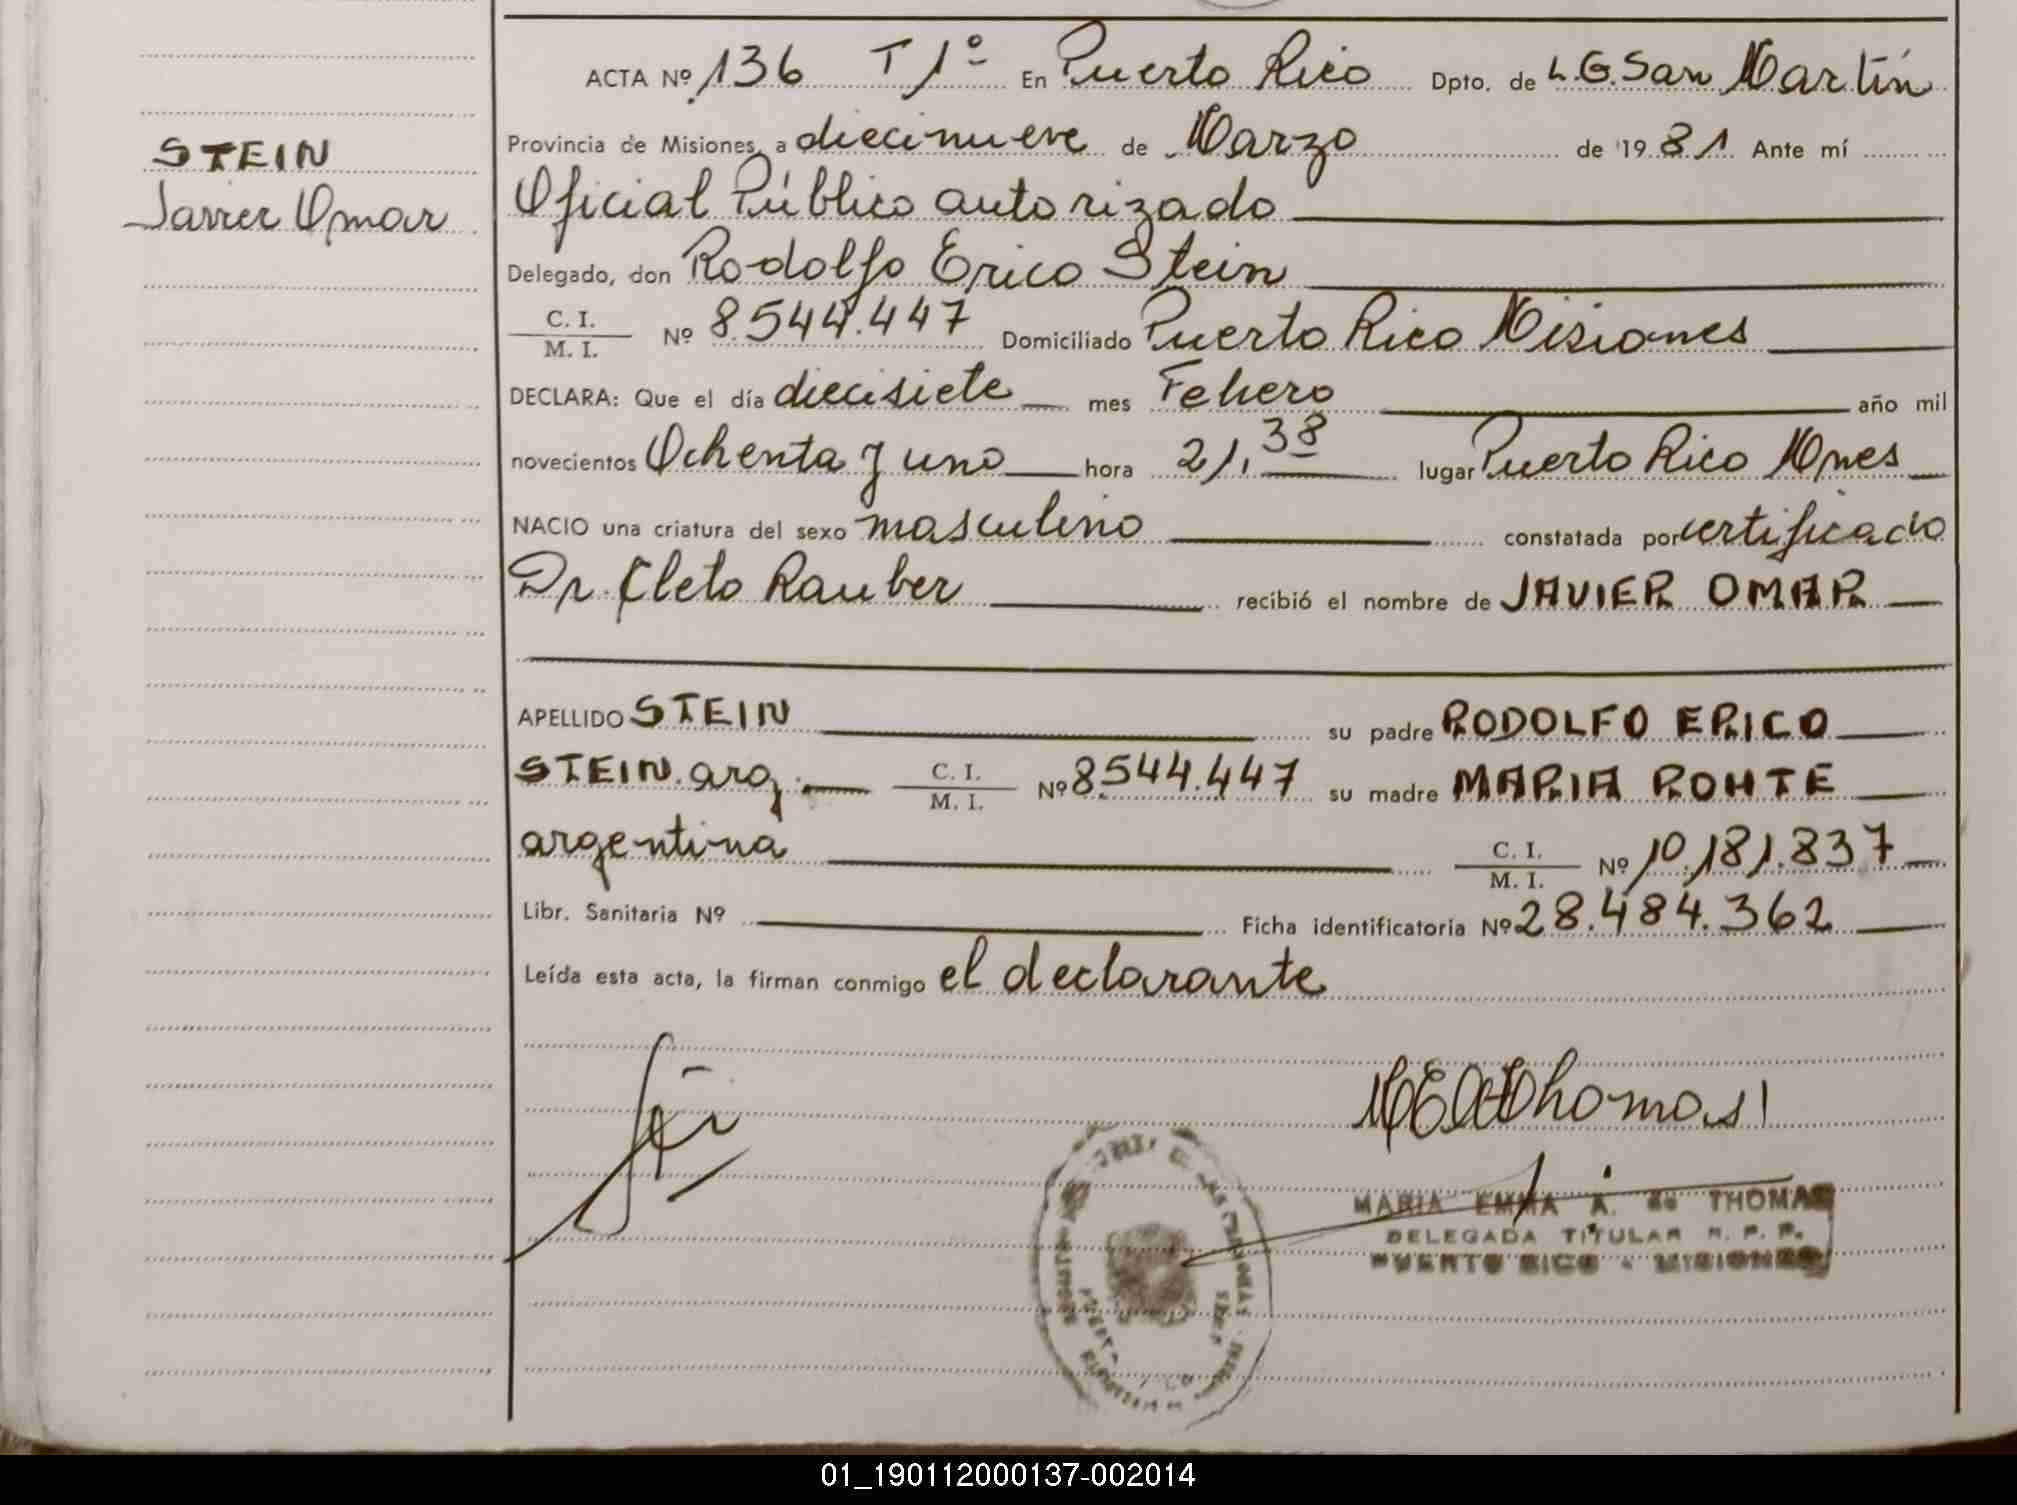 ACTA Nº 136 T 1º En Puerto Rico Dpto. de L.G. San Martín
STEIN
Javier Omar
Provincia de Misiones, a diecinueve de Marzo de 1981 Ante mí
Oficial Público autorizado
Delegado, don Rodolfo Erico Stein
C. I.
M. I. Nº 8.544.447 Domiciliado Puerto Rico Misiones
DECLARA: Que el día diecisiete mes Febrero año mil
novecientos Ochenta y uno hora 21,38 lugar Puerto Rico Mnes
NACIO una criatura del sexo masculino constatada por certificado
Dr. Cleto Rauber recibió el nombre de JAVIER OMAR
APELLIDO STEIN su padre RODOLFO ERICO
STEIN. arg. C. I. M. I. Nº 8.544.447 su madre MARIA ROHTE
argentina C. I. M. I. Nº 10.181.837
Libr. Sanitaria Nº Ficha identificatoria Nº 28.484.362
Leída esta acta, la firman conmigo el declarante
MARIA EMMA A. de THOMAS
DELEGADA TITULAR R. P. P.
PUERTO RICO - MISIONES
01_190112000137-002014